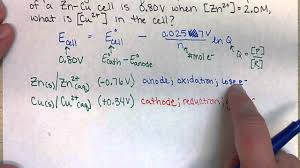 of a Zn-Cu cell is 0.80V when [Zn²⁺] = 2.0M,
what is [Cu²⁺] in the cell?
E cell = E° cell − 0.0257V / n ln Q
0.80V
E° cath − E° anode
Q = [P] / [R]
Zn(s)/Zn²⁺(aq) (−0.76V) anode; oxidation; lose e⁻
Cu(s)/Cu²⁺(aq) (+0.34V) cathode; reduction;